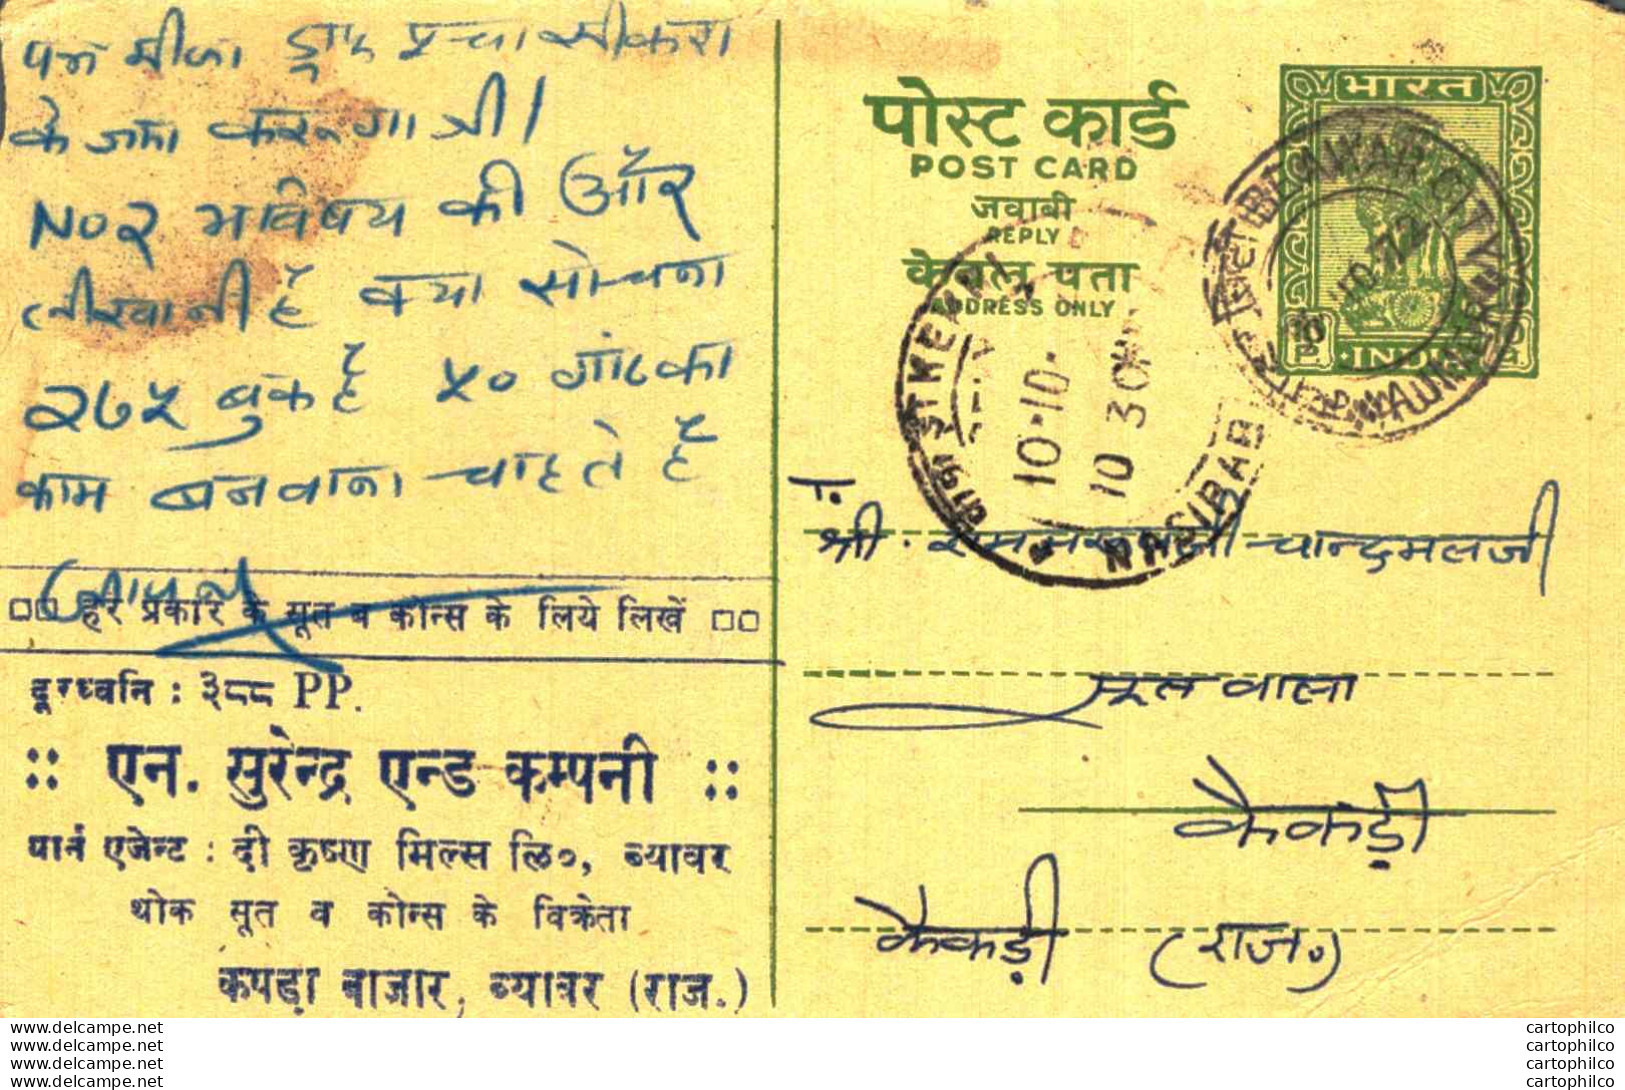 पत्र मीला
के जमा करूंगा जी।
NO २ भविषय की और
है क्या सोचना
२७५ बुक है ५० गांठ का
काम बनवाना चाहते है
□□ हर प्रकार के सूत व कोन्स के लिये लिखें □□
दूरध्वनि : ३८८ PP.
:: एन. सुरेन्द्र एन्ड कम्पनी ::
यार्न एजेन्ट : दी कृष्णा मिल्स लि०, ब्यावर
थोक सूत व कोन्स के विक्रेता
कपड़ा बाजार, ब्यावर (राज.)
पोस्ट कार्ड
POST CARD
जवाबी
REPLY
केवल पता
ADDRESS ONLY
भारत
10 P.
INDIA
BEAWAR CITY
10-72
NASIRABAD
10-10-
10 30
श्री. चान्दमलजी
सूत वाला
कैकड़ी
कैकड़ी (राज.)
www.delcampe.net
www.delcampe.net
www.delcampe.net
www.delcampe.net
cartophilco
cartophilco
cartophilco
cartophilco